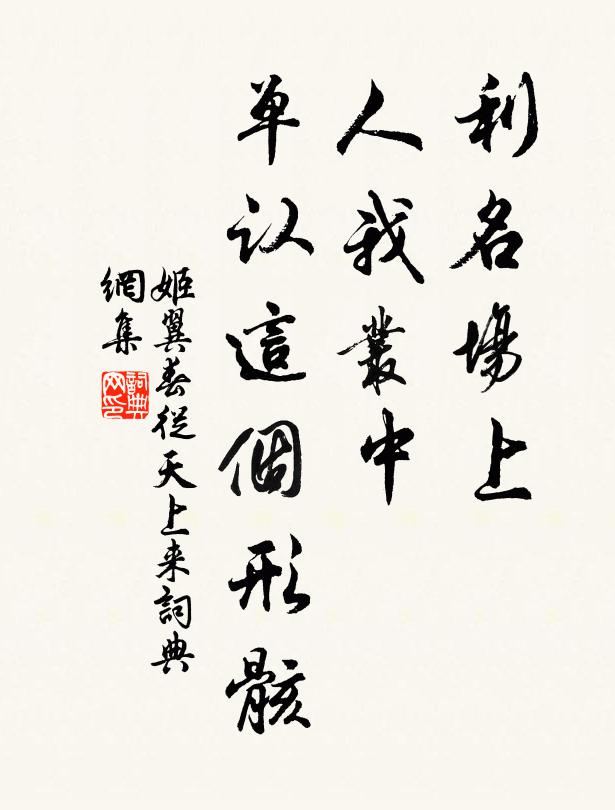 利名場上
人我叢中
单认這個形骸
姬翼春從天上来詞典
網集
詞典网印